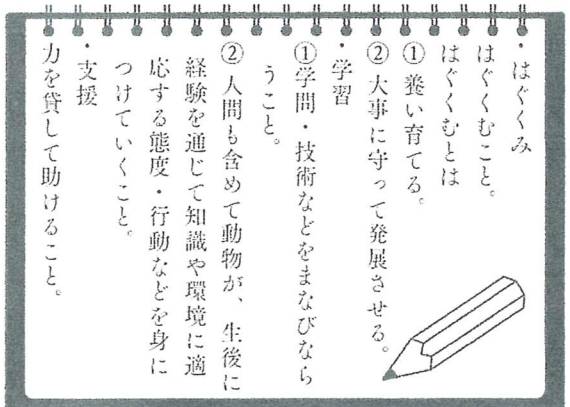 ・はぐくみ
はぐくむこと。
はぐくむとは
① 養い育てる。
② 大事に守って発展させる。
・学習
①学問・技術などをまなびなら
うこと。
② 人間も含めて動物が、生後に
経験を通じて知識や環境に適
応する態度・行動などを身に
つけていくこと。
・支援
力を貸して助けること。